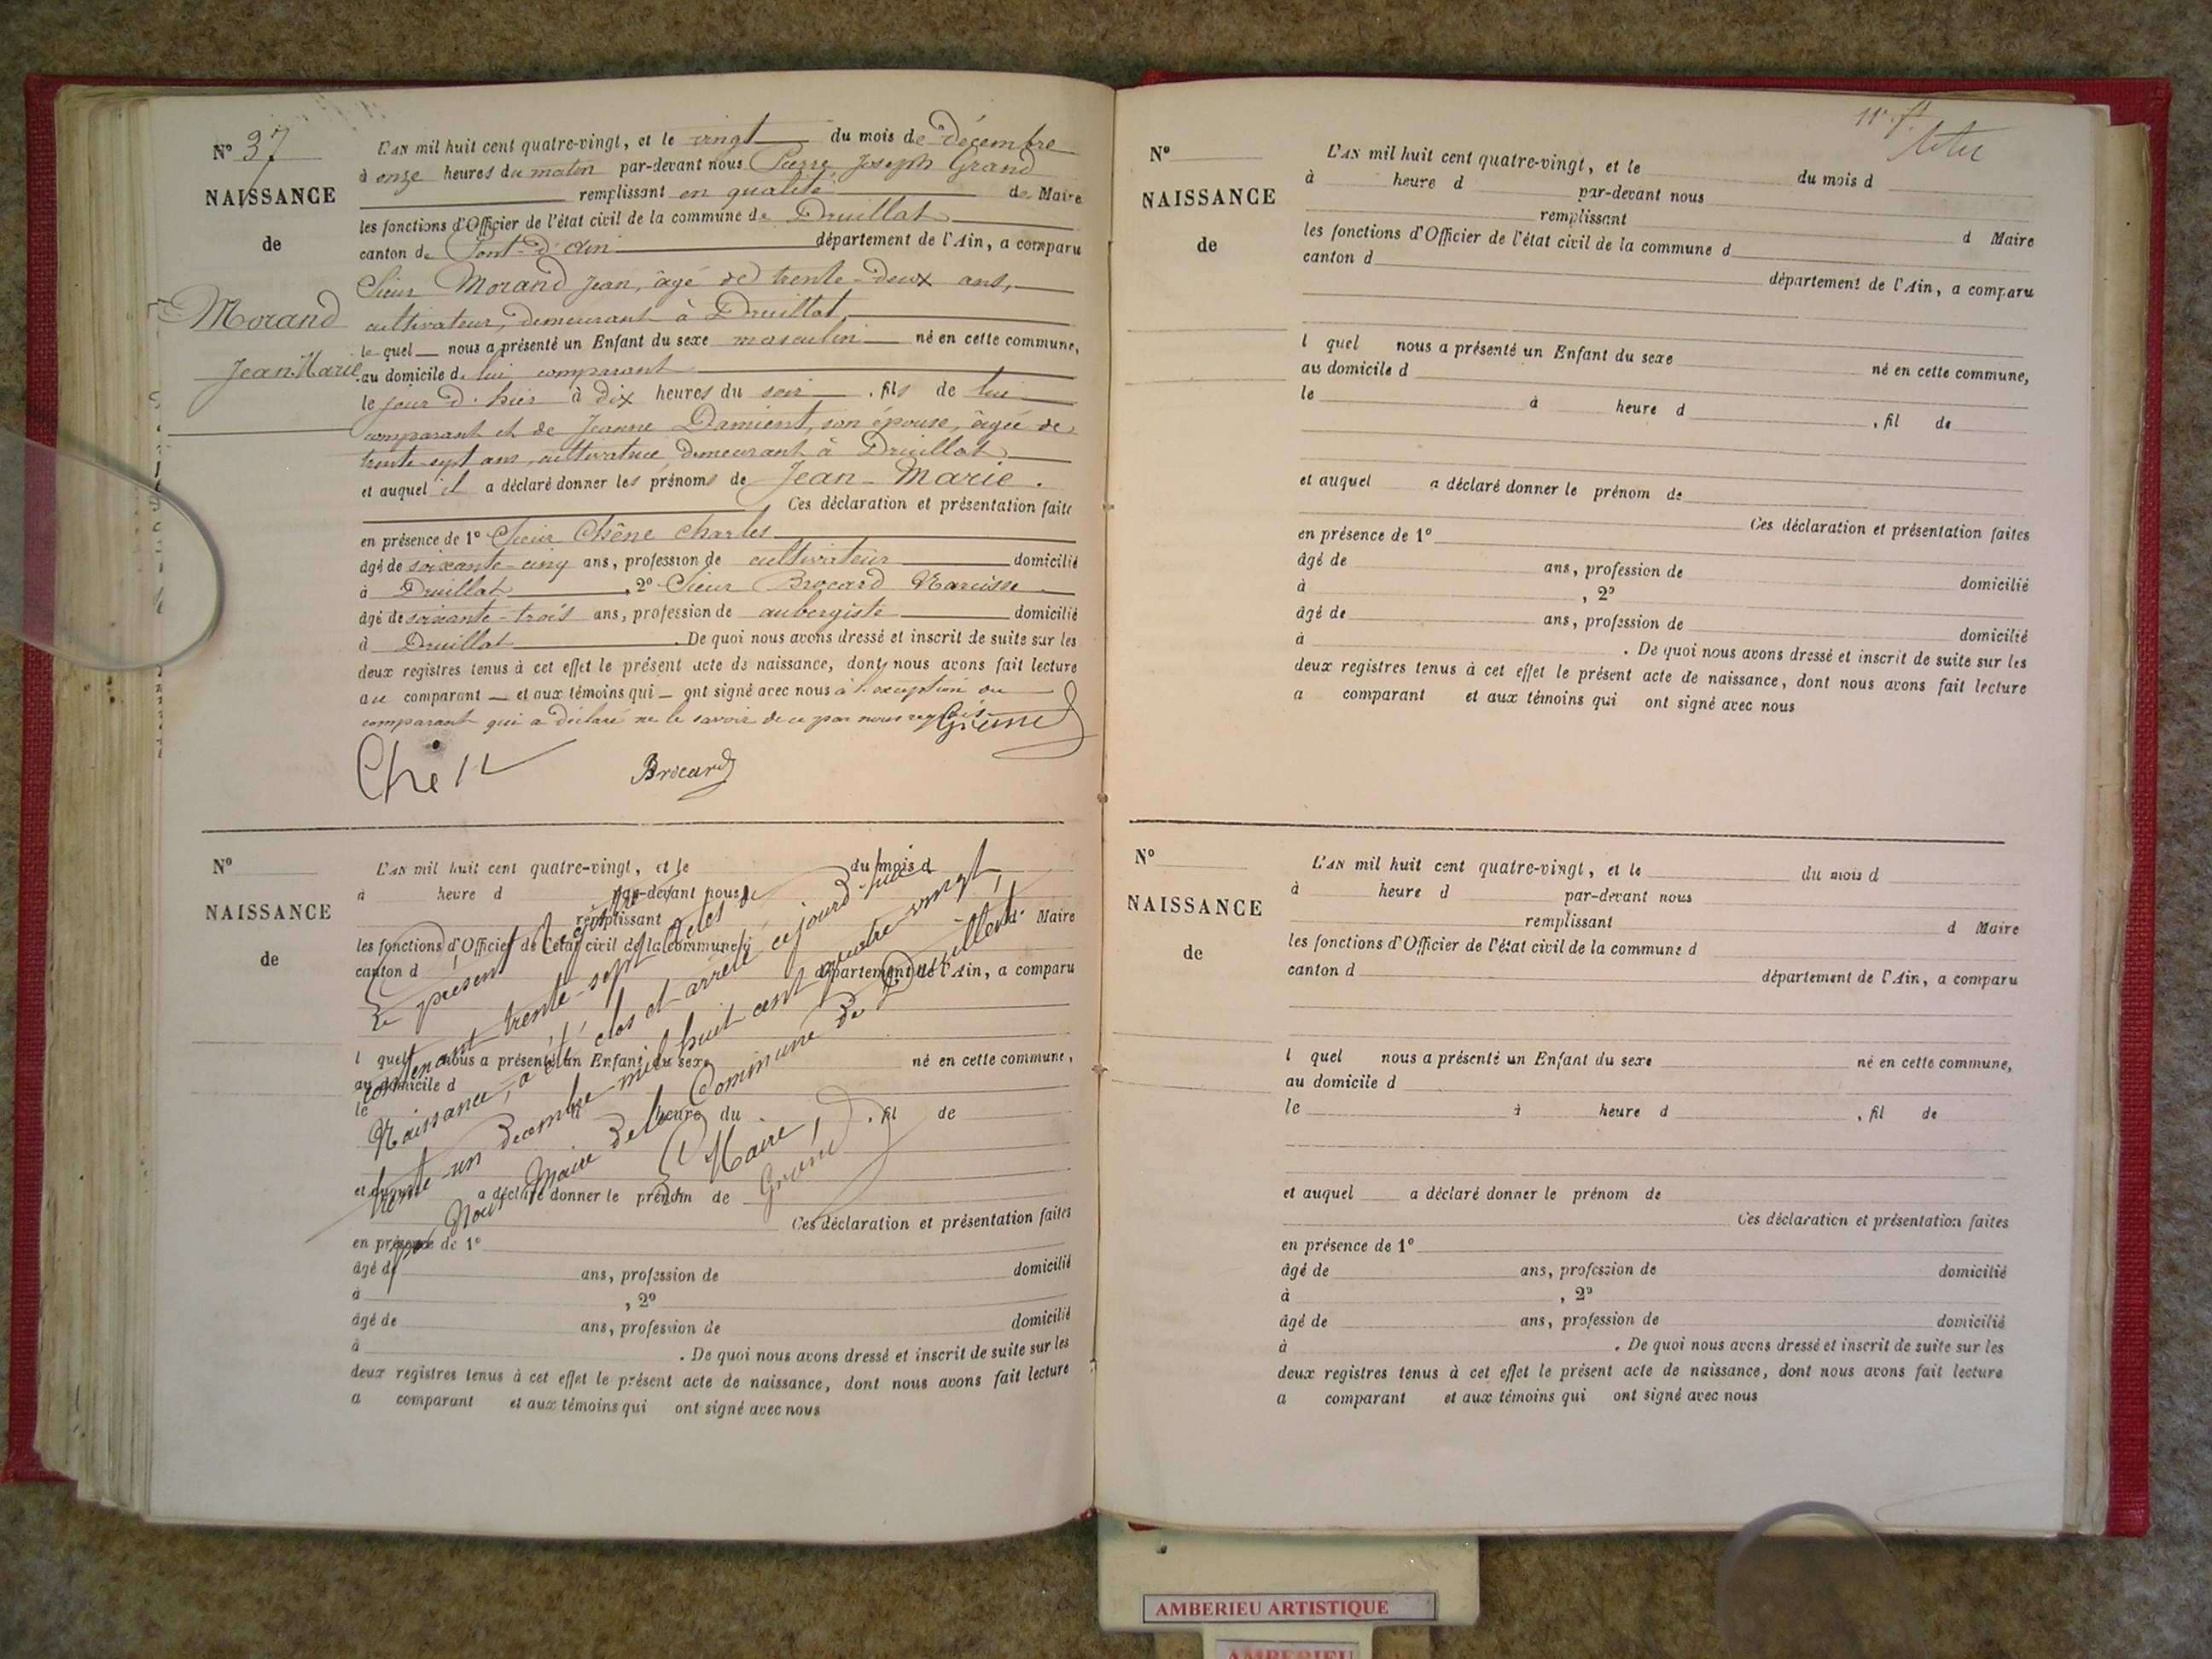 Nº 37
NAISSANCE
de
Morand
Jean Marie
L'AN mil huit cent quatre-vingt, et le vingt du mois de Décembre
à onze heures du matin par-devant nous Pierre Joseph Grand
remplissant en qualité de Maire
les fonctions d'Officier de l'état civil de la commune de Druillat
canton de Pont-d'Ain département de l'Ain, a comparu
Sieur Morand Jean, âgé de trente-deux ans,
cultivateur, demeurant à Druillat,
lequel nous a présenté un Enfant du sexe masculin né en cette commune,
au domicile de lui comparant
le jour d'hier à dix heures du soir, fils de lui
comparant et de Jeanne Damient, son épouse, âgée de
trente-sept ans, cultivatrice, demeurant à Druillat
et auquel il a déclaré donner les prénoms de Jean-Marie.
Ces déclaration et présentation faite
en présence de 1º Sieur Chêne Charles
âgé de soixante-cinq ans, profession de cultivateur domicilié
à Druillat, 2º Sieur Brocard Narcisse
âgé de soixante-trois ans, profession de aubergiste domicilié
à Druillat. De quoi nous avons dressé et inscrit de suite sur les
deux registres tenus à cet effet le présent acte de naissance, dont nous avons fait lecture
au comparant et aux témoins qui ont signé avec nous à l'exception du
comparant qui a déclaré ne le savoir de ce par nous requis
Brocard
Nº
NAISSANCE
de
L'AN mil huit cent quatre-vingt, et le du mois d
à heure d par-devant nous
remplissant d Maire
les fonctions d'Officier de l'état civil de la commune d
canton d département de l'Ain, a comparu
l quel nous a présenté un Enfant du sexe né en cette commune,
au domicile d
le à heure du , fil de
et auquel a déclaré donner le prénom de
Ces déclaration et présentation faites
en présence de 1º
âgé de ans, profession de domicilié
à , 2º
âgé de ans, profession de domicilié
à . De quoi nous avons dressé et inscrit de suite sur les
deux registres tenus à cet effet le présent acte de naissance, dont nous avons fait lecture
a comparant et aux témoins qui ont signé avec nous
Le présent Registre
contenant trente-sept actes de
Naissance, a été clos et arrêté ce jourd'hui
trente-un décembre mil huit cent quatre-vingt,
par Nous Maire de la Commune de Druillat.
Le Maire,
Grand
Nº
NAISSANCE
de
L'AN mil huit cent quatre-vingt, et le du mois d
à heure d par-devant nous
remplissant d Maire
les fonctions d'Officier de l'état civil de la commune d
canton d département de l'Ain, a comparu
l quel nous a présenté un Enfant du sexe né en cette commune,
au domicile d
le à heure d , fil de
et auquel a déclaré donner le prénom de
Ces déclaration et présentation faites
en présence de 1º
âgé de ans, profession de domicilié
à , 2º
âgé de ans, profession de domicilié
à . De quoi nous avons dressé et inscrit de suite sur les
deux registres tenus à cet effet le présent acte de naissance, dont nous avons fait lecture
a comparant et aux témoins qui ont signé avec nous
Nº
NAISSANCE
de
L'AN mil huit cent quatre-vingt, et le du mois d
à heure d par-devant nous
remplissant d Maire
les fonctions d'Officier de l'état civil de la commune d
canton d département de l'Ain, a comparu
l quel nous a présenté un Enfant du sexe né en cette commune,
au domicile d
le à heure d , fil de
et auquel a déclaré donner le prénom de
Ces déclaration et présentation faites
en présence de 1º
âgé de ans, profession de domicilié
à , 2º
âgé de ans, profession de domicilié
à . De quoi nous avons dressé et inscrit de suite sur les
deux registres tenus à cet effet le présent acte de naissance, dont nous avons fait lecture
a comparant et aux témoins qui ont signé avec nous
AMBERIEU ARTISTIQUE
AMBERIEU